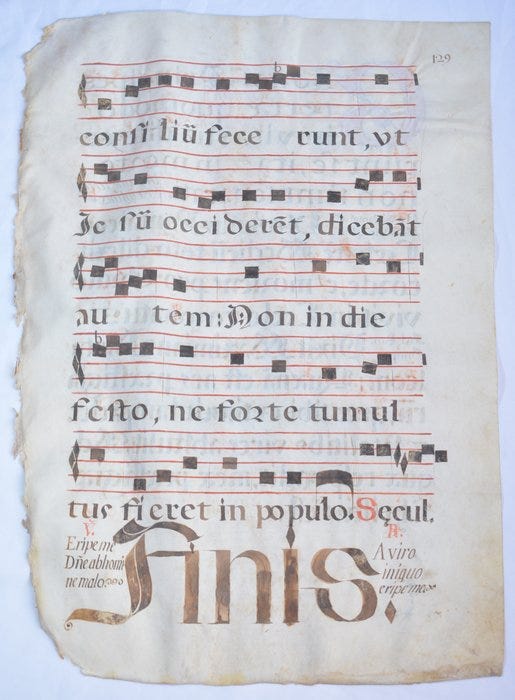 129
consiliū fece runt, vt
Jesū occiderēt, dicebāt
au tem: Non in die
festo, ne forte tumul
tus fieret in populo. Secul.
V.
Eripe me
Dn̄e ab homi
ne malo
Finis.
R.
A viro
iniquo
eripe me